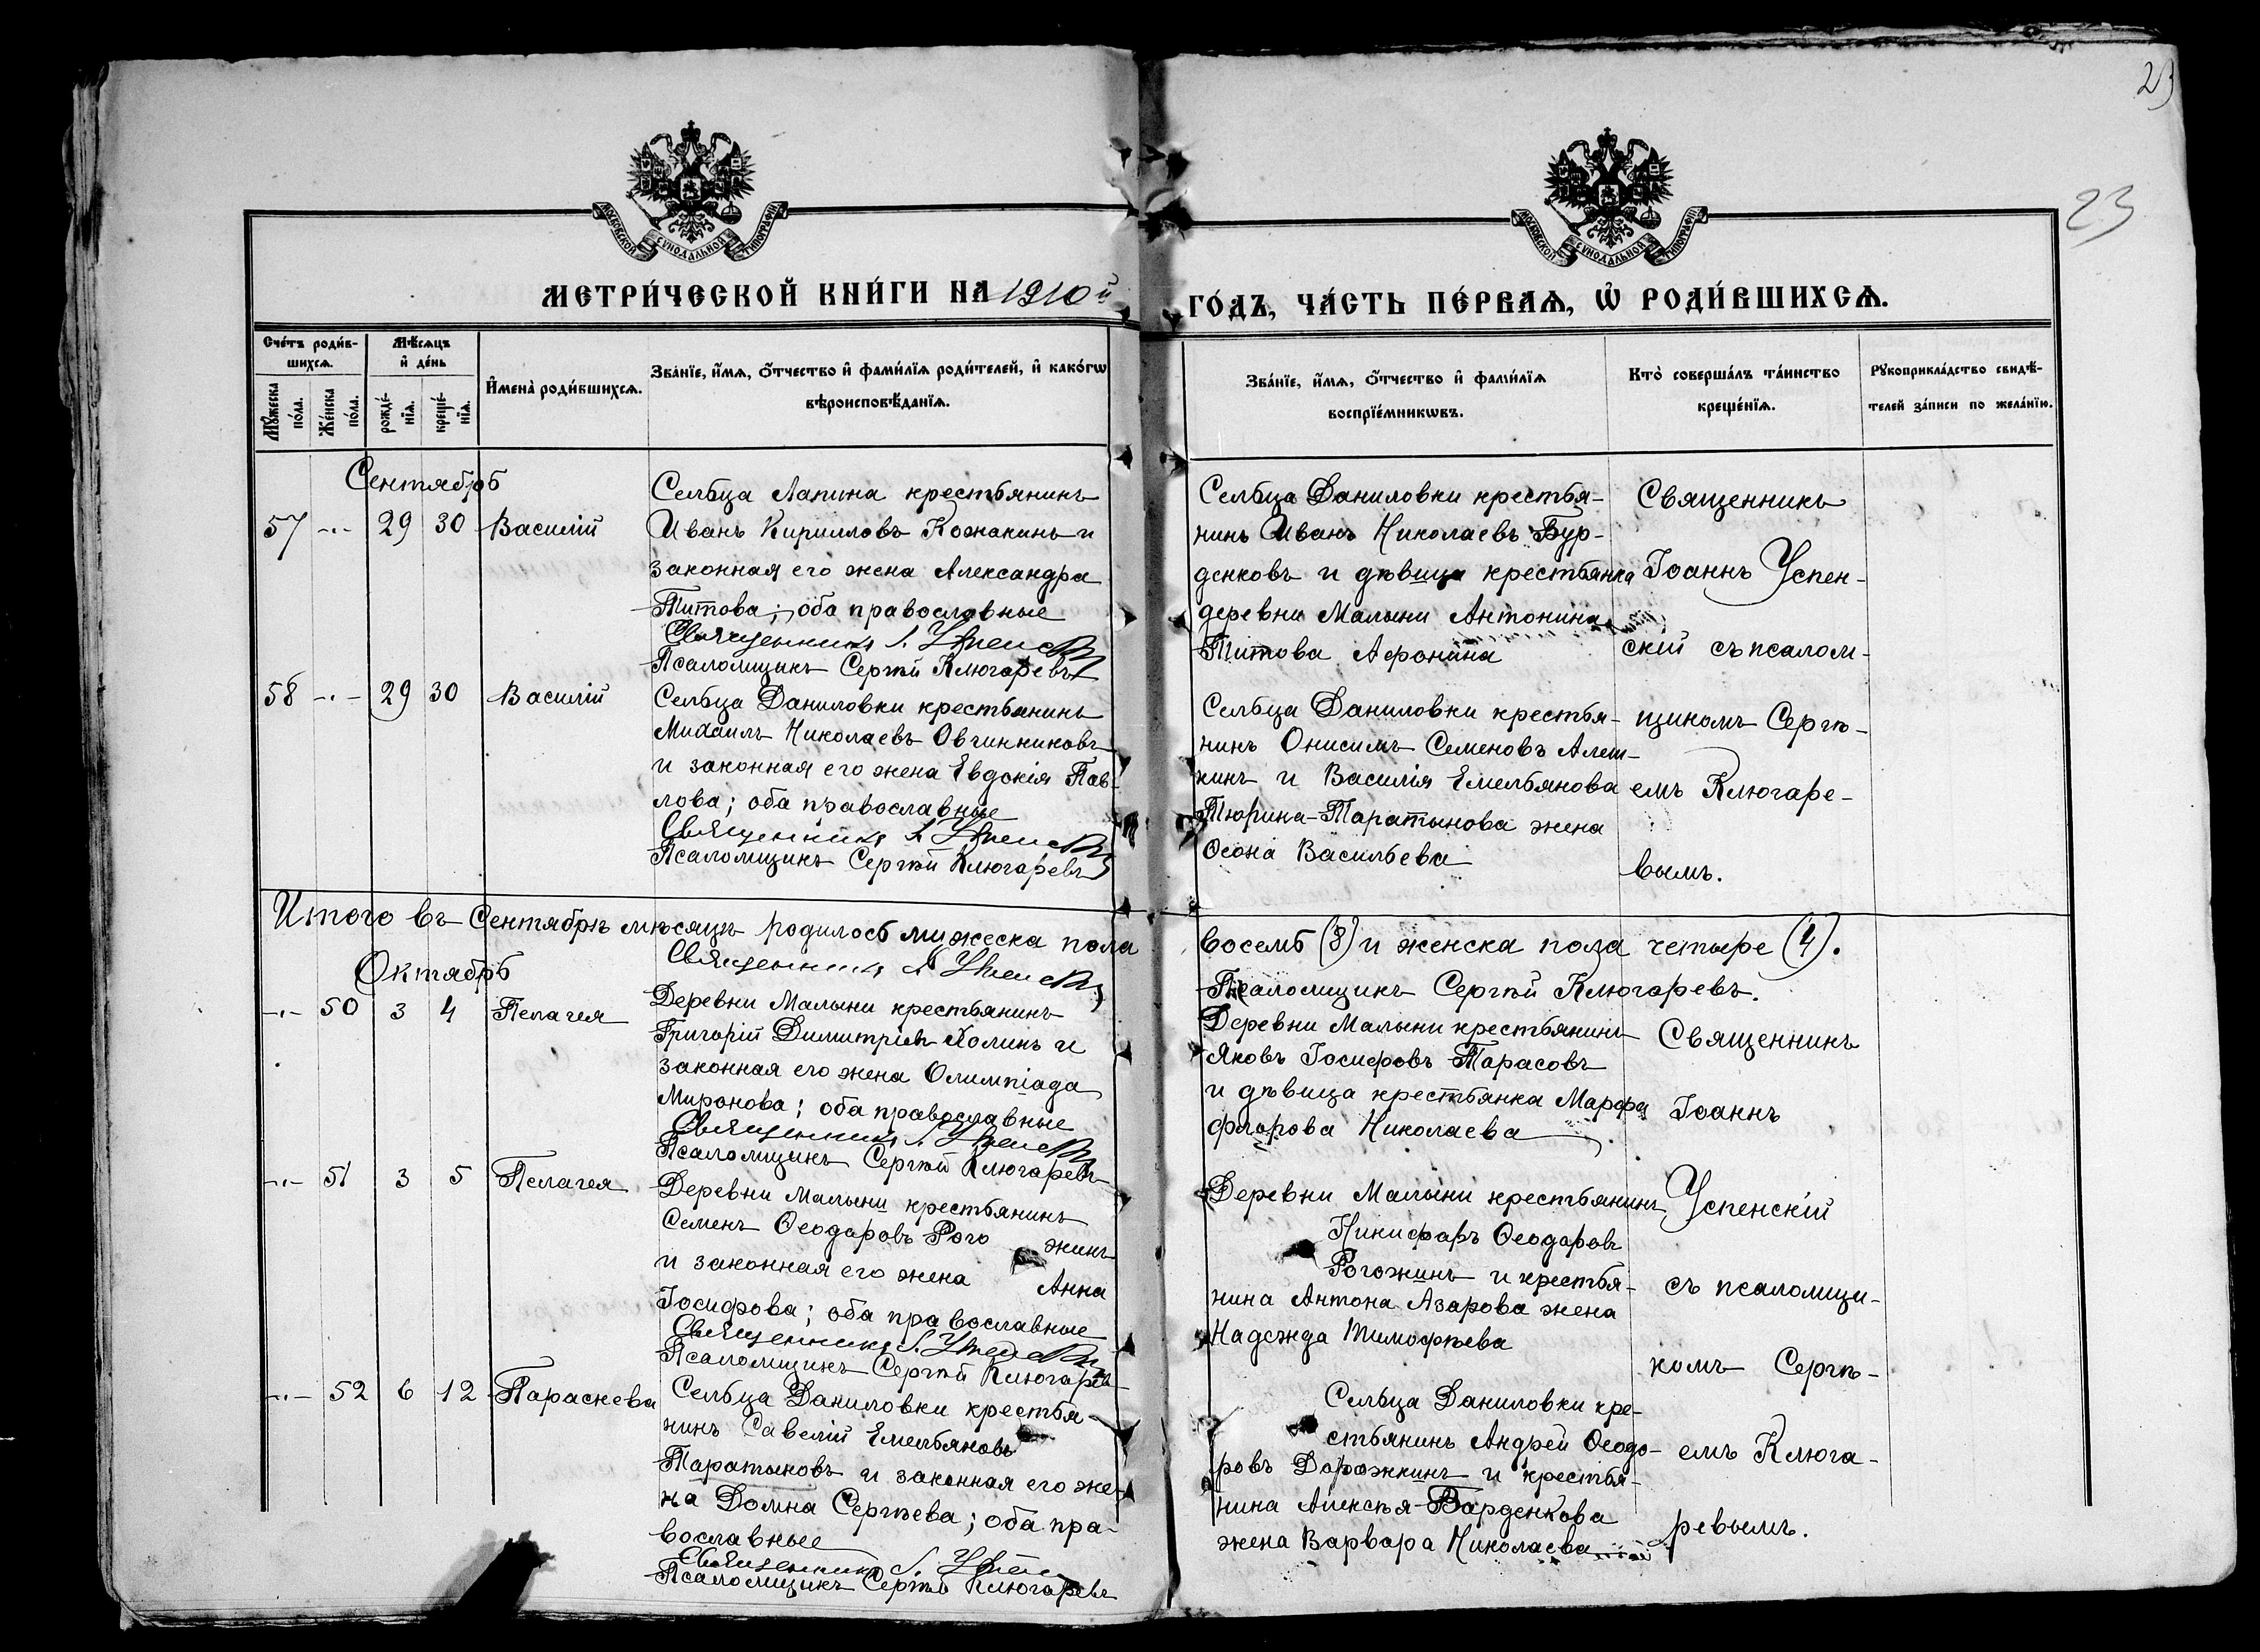 23
23
МОСКОВСКОЙ СѴНОДАЛЬНОЙ ТИПОГРАФІИ
МОСКОВСКОЙ СѴНОДАЛЬНОЙ ТИПОГРАФІИ
МЕТРИ́ЧЕСКОЙ КНИ́ГИ НА 1910й
ГО́ДЪ, ЧА́СТЬ ПЕ́РВАѦ, Ѡ҆ РОДИ́ВШИХСѦ.
Сче́тъ роди́в-
шихсѧ.
Мꙋ́жеска
по́ла.
Же́нска
по́ла.
Мѣ́сѧцъ
и҆ де́нь
рожде́-
нїѧ.
креще́-
нїѧ.
И҆мена̀ роди́вшихсѧ.
Зва́нїе, и҆́мѧ, ѻ҆́тчество и҆ фами́лїѧ роди́телей, и҆ како́гѡ
вѣроисповѣ́данїѧ.
Зва́нїе, и҆́мѧ, ѻ҆́тчество и҆ фами́лїѧ
воспрїе́мникѡвъ.
Кто̀ соверша́лъ та́инство
креще́нїѧ.
Рꙋкоприкла́дство свидѣ́-
телей за́писи по жела́нїю.
Сентябрь
57 -"- 29 30 Василій
Сельца Лапина крестьянинъ
Иванъ Кирилловъ Кожакинъ и
законная его жена Александра
Титова; оба православные
Священникъ І. Успенскій
Псаломщикъ Сергѣй Ключаревъ
Сельца Даниловки крестья-
нинъ Иванъ Николаевъ Бур-
денковъ и дѣвица крестьянка
деревни Малыни Антонина
Титова Афонина
58 -"- 29 30 Василій
Сельца Даниловки крестьянинъ
Михаилъ Николаевъ Овчинниковъ
и законная его жена Евдокія Пав-
лова; оба православные
Священникъ І. Успенскій
Псаломщикъ Сергѣй Ключаревъ
Сельца Даниловки крестья-
нинъ Онисимъ Семеновъ Алеш-
кинъ и Василія Емельянова
Тюрина-Таратынова жена
Ѳеона Васильева
Священникъ
Іоаннъ Успен-
скій съ псалом-
щикомъ Сергѣ-
емъ Ключаре-
вымъ.
Итого въ Сентябрѣ мѣсяцѣ родилось мужеска пола
восемь (8) и женска пола четыре (4).
Священникъ І. Успенскій
Псаломщикъ Сергѣй Ключаревъ.
Октябрь
-"- 50 3 4 Пелагея
Деревни Малыни крестьянинъ
Григорій Димитріевъ Холинъ и
законная его жена Олимпіада
Миронова; оба православные
Священникъ І. Успенскій
Псаломщикъ Сергѣй Ключаревъ
Деревни Малыни крестьянинъ
Яковъ Іосифовъ Тарасовъ
и дѣвица крестьянка Марфа
Флорова Николаева
-"- 51 3 5 Пелагея
Деревни Малыни крестьянинъ
Семенъ Ѳеодоровъ Рого жинъ
и законная его жена Анна
Іосифова; оба православные
Священникъ І. Успенскій
Псаломщикъ Сергѣй Ключаревъ
Деревни Малыни крестьянинъ
Никифоръ Ѳеодоровъ
Рогожинъ и крестья-
нина Антона Азарова жена
Надежда Тимофѣева
-"- 52 6 12 Параскева
Сельца Даниловки крестья-
нинъ Савелій Емельяновъ
Таратыновъ и законная его же-
на Домна Сергѣева; оба пра-
вославные
Священникъ І. Успен
Псаломщикъ Сергѣй Ключаревъ
Сельца Даниловки кре-
стьянинъ Андрей Ѳеодо-
ровъ Дорожкинъ и крестья-
нина Алексѣя Барденкова
жена Варвара Николаева
Священникъ
Іоаннъ
Успенскій
съ псаломщи-
комъ Сергѣ-
емъ Ключа-
ревымъ.